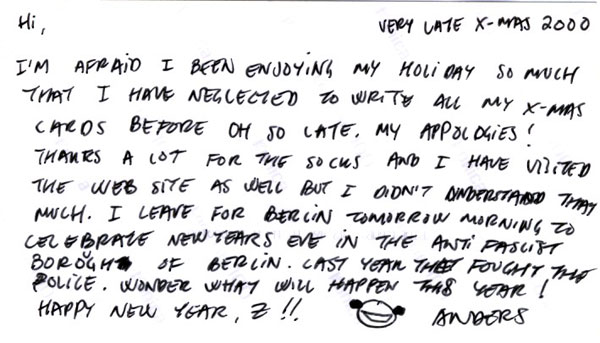 Hi,
VERY LATE X-MAS 2000
I'M AFRAID I BEEN ENJOYING MY HOLIDAY SO MUCH
THAT I HAVE NEGLECTED TO WRITE ALL MY X-MAS
CARDS BEFORE OH SO LATE. MY APPOLOGIES!
THANKS A LOT FOR THE SOCKS AND I HAVE VISITED
THE WEB SITE AS WELL BUT I DIDN'T UNDERSTAND THAT
MUCH. I LEAVE FOR BERLIN TOMORROW MORNING TO
CELEBRATE NEW YEARS EVE IN THE ANTI FASCIST
BOROUGH OF BERLIN. LAST YEAR THEY FOUGHT THE
POLICE. WONDER WHAT WILL HAPPEN THIS YEAR!
HAPPY NEW YEAR, Z!!. ANDERS